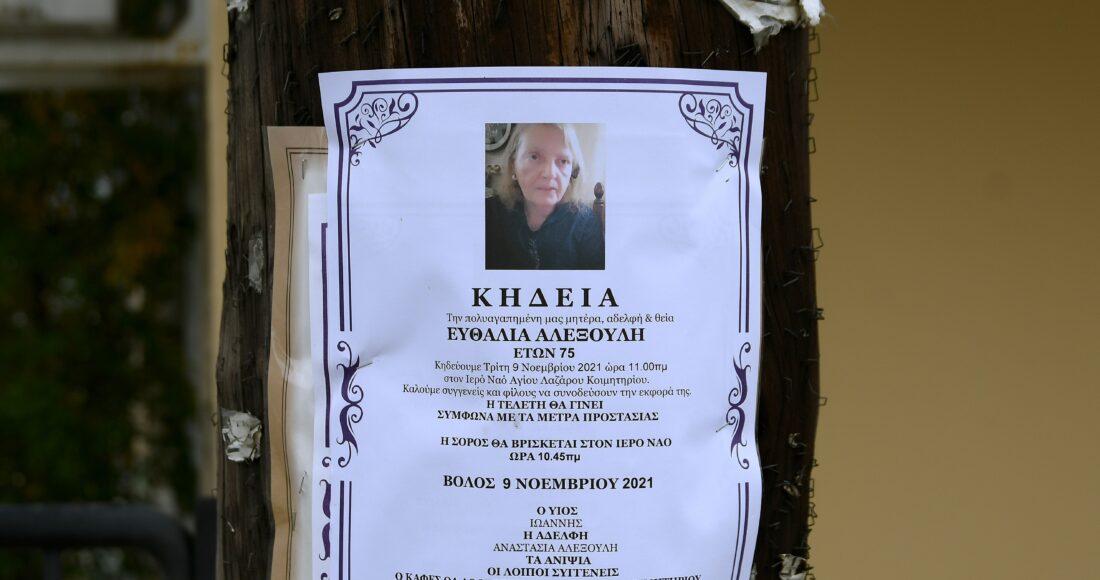 ΚΗΔΕΙΑ
Την πολυαγαπημένη μας μητέρα, αδελφή & θεία
ΕΥΘΑΛΙΑ ΑΛΕΞΟΥΛΗ
ΕΤΩΝ 75
Κηδεύουμε Τρίτη 9 Νοεμβρίου 2021 ώρα 11.00πμ
στον Ιερό Ναό Αγίου Λαζάρου Κοιμητηρίου.
Καλούμε συγγενείς και φίλους να συνοδεύσουν την εκφορά της.
Η ΤΕΛΕΤΗ ΘΑ ΓΙΝΕΙ
ΣΥΜΦΩΝΑ ΜΕ ΤΑ ΜΕΤΡΑ ΠΡΟΣΤΑΣΙΑΣ
Η ΣΟΡΟΣ ΘΑ ΒΡΙΣΚΕΤΑΙ ΣΤΟΝ ΙΕΡΟ ΝΑΟ
ΩΡΑ 10.45πμ
ΒΟΛΟΣ 9 ΝΟΕΜΒΡΙΟΥ 2021
Ο ΥΙΟΣ
ΙΩΑΝΝΗΣ
Η ΑΔΕΛΦΗ
ΑΝΑΣΤΑΣΙΑ ΑΛΕΞΟΥΛΗ
ΤΑ ΑΝΙΨΙΑ
ΟΙ ΛΟΙΠΟΙ ΣΥΓΓΕΝΕΙΣ
Ο ΚΑΦΕΣ ΘΑ